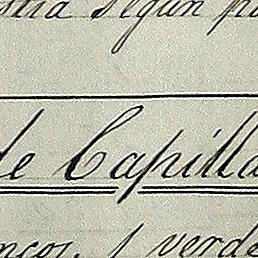 stra según pa
de Capilla
ncos, 1 verde